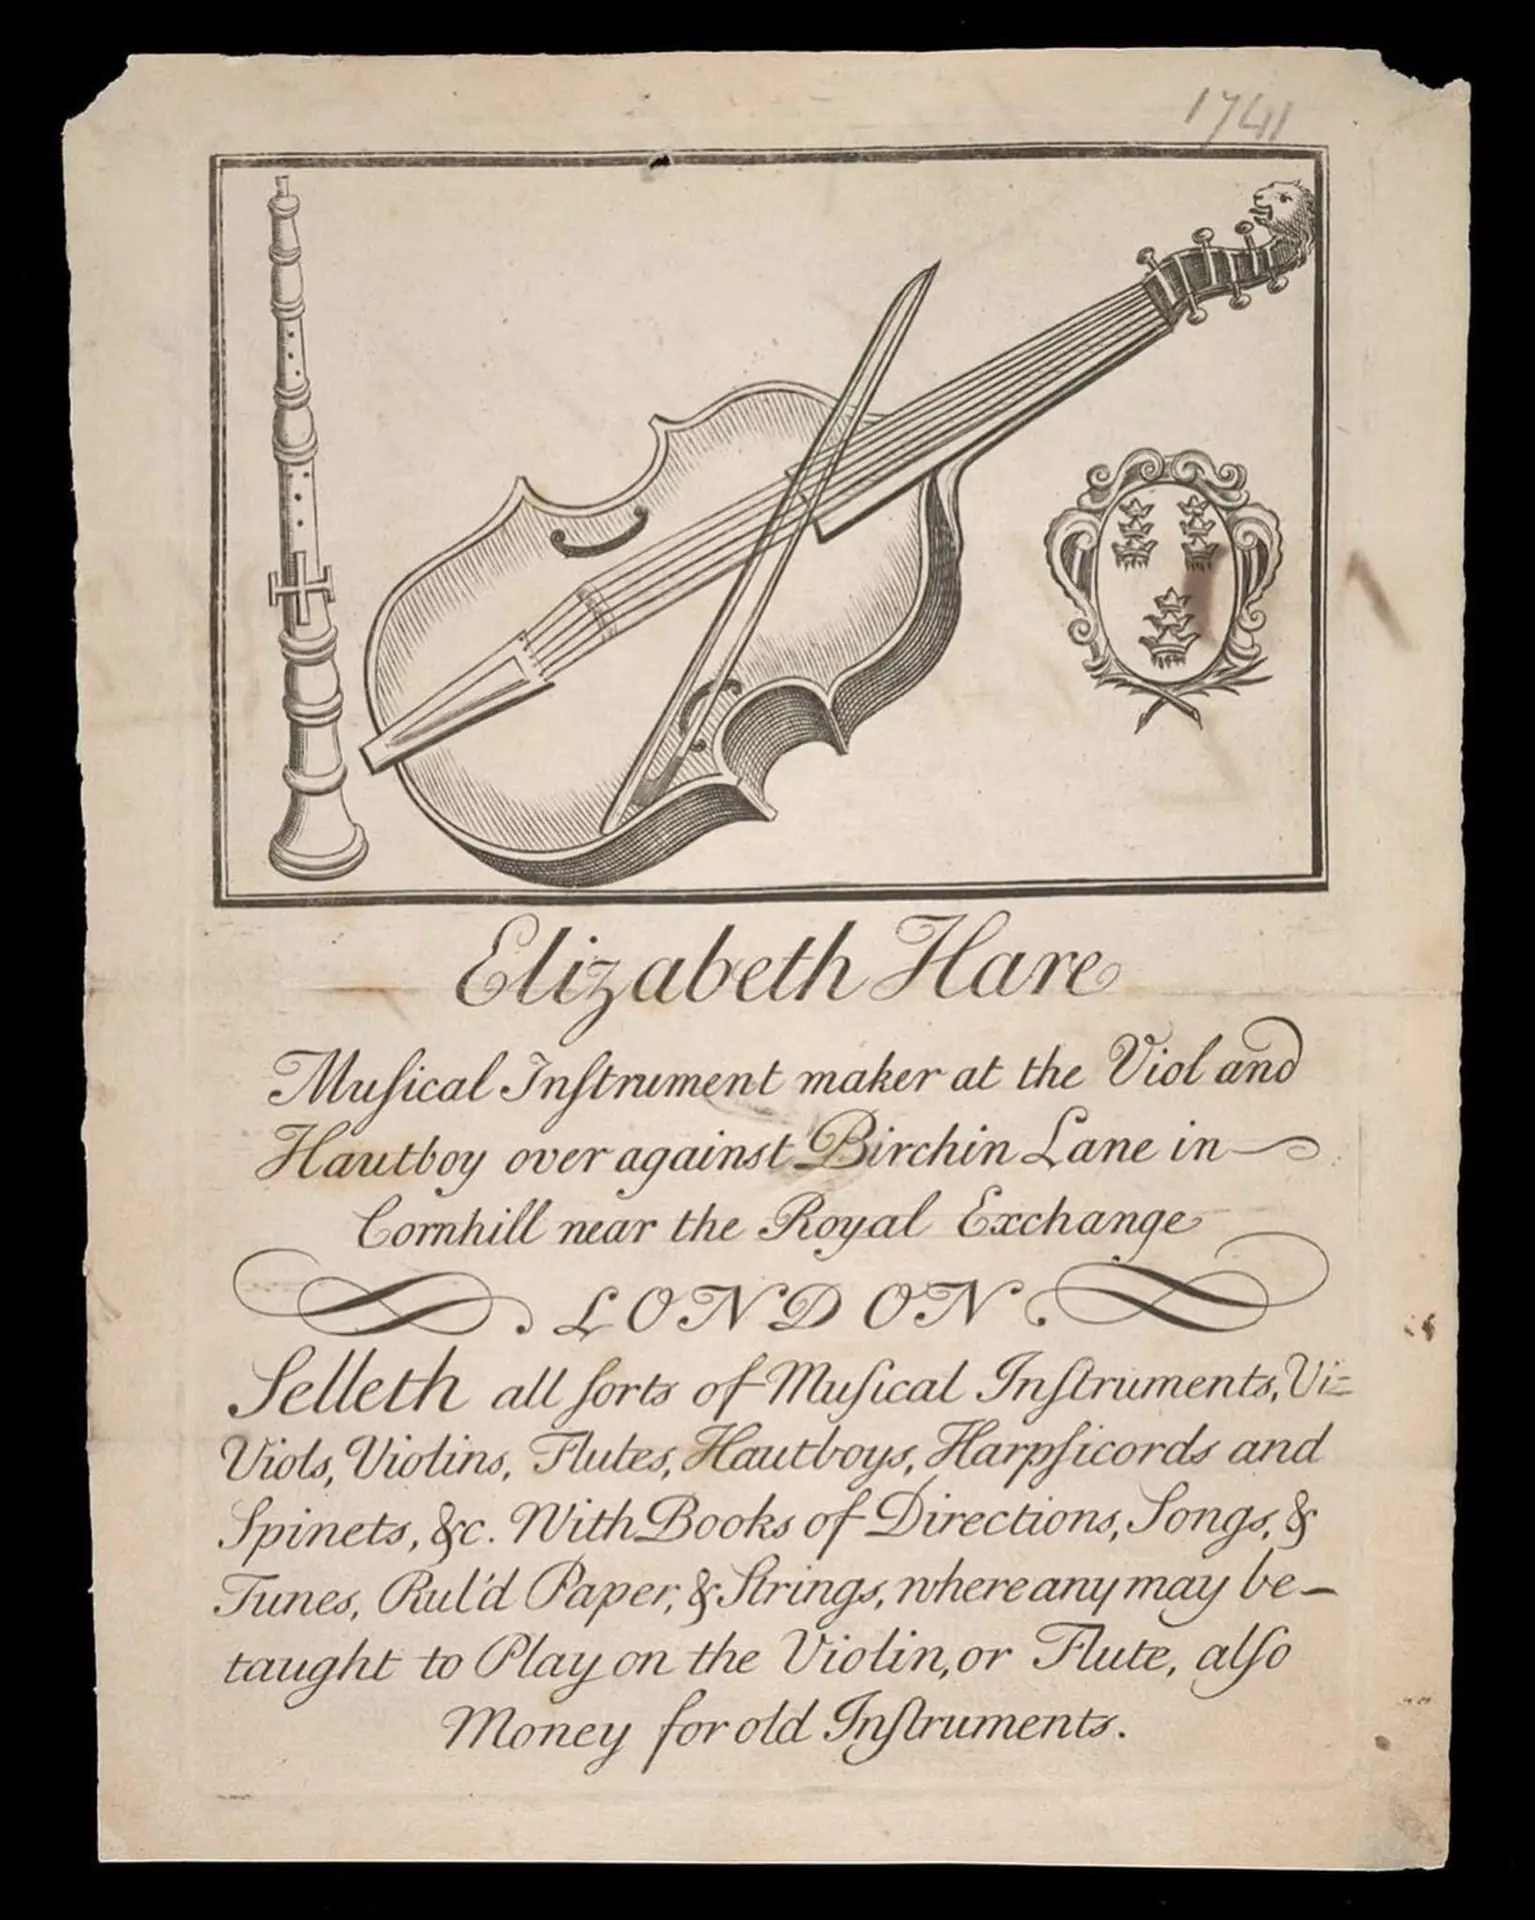 1741
Elizabeth Hare
Muſical Inſtrument maker at the Viol and
Hautboy over against Birchin Lane in
Cornhill near the Royal Exchange
LONDON
Selleth all ſorts of Muſical Inſtruments, Vi=
Viols, Violins, Flutes, Hautboys, Harpſicords and
Spinets, &c. With Books of Directions, Songs, &
Tunes, Rul'd Paper, & Strings, where any may be
taught to Play on the Violin, or Flute, alſo
Money for old Inſtruments.